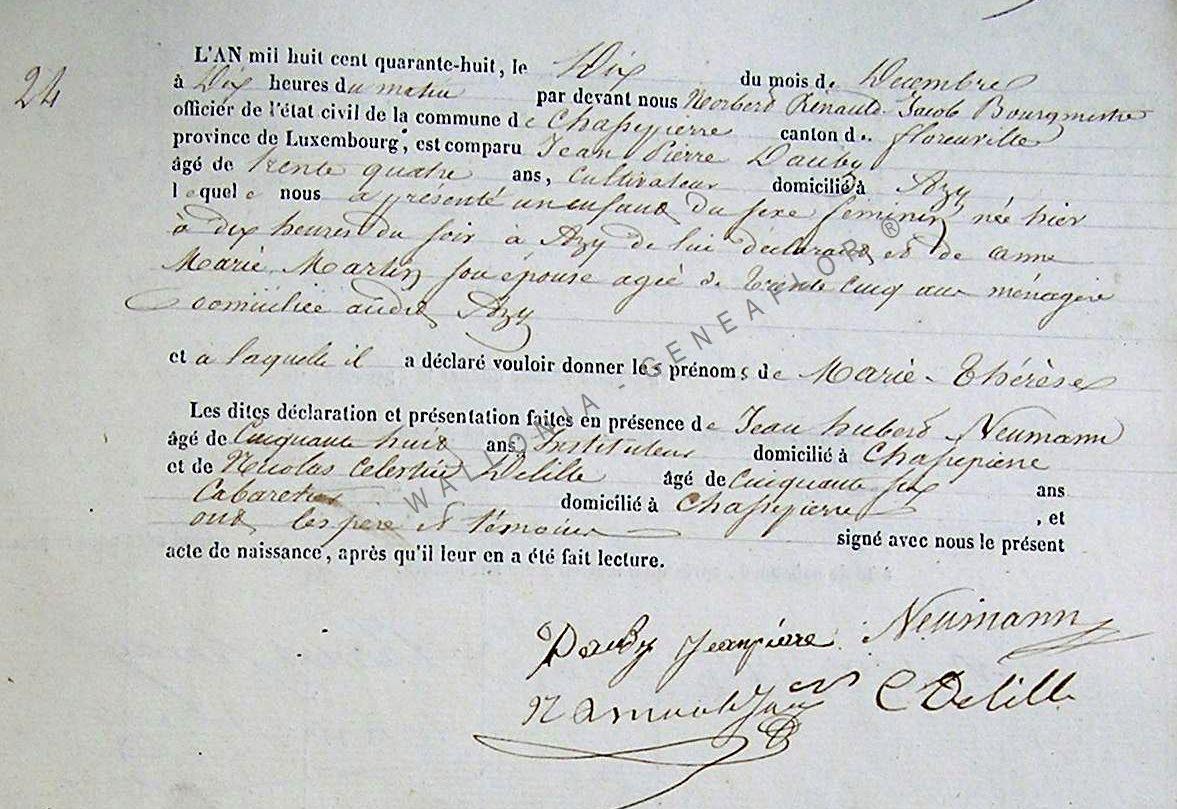 24
L'AN mil huit cent quarante-huit, le Dix du mois de Decembre
à Dix heures du matin par devant nous Norberd Renauld Jacob Bourgmestre
officier de l'état civil de la commune de Chassepierre canton de florenville
province de Luxembourg, est comparu Jean Pierre Dauby
âgé de trente quatre ans, cultivateur domicilié à Azy
lequel e nous a présenté un enfant du sexe féminin née hier
à dix heures du soir à Azy de lui déclarant et de anne
Marie Martin son épouse agée de trente cinq ans ménagère
domiciliée audit Azy
et a laquelle il a déclaré vouloir donner les prénoms de Marie-Thérèse
Les dites déclaration et présentation faites en présence de Jean hubert Neumann
âgé de Cinquante huit ans, Instituteur domicilié à Chassepierre
et de Nicolas Celestin Delille âgé de Cinquante six ans
Cabaretier domicilié à Chassepierre, et
ont les pere et témoins signé avec nous le présent
acte de naissance, après qu'il leur en a été fait lecture.
Dauby Jeanpierre Neumann
C Delille
WALLONIA - GENEAFLOR ®